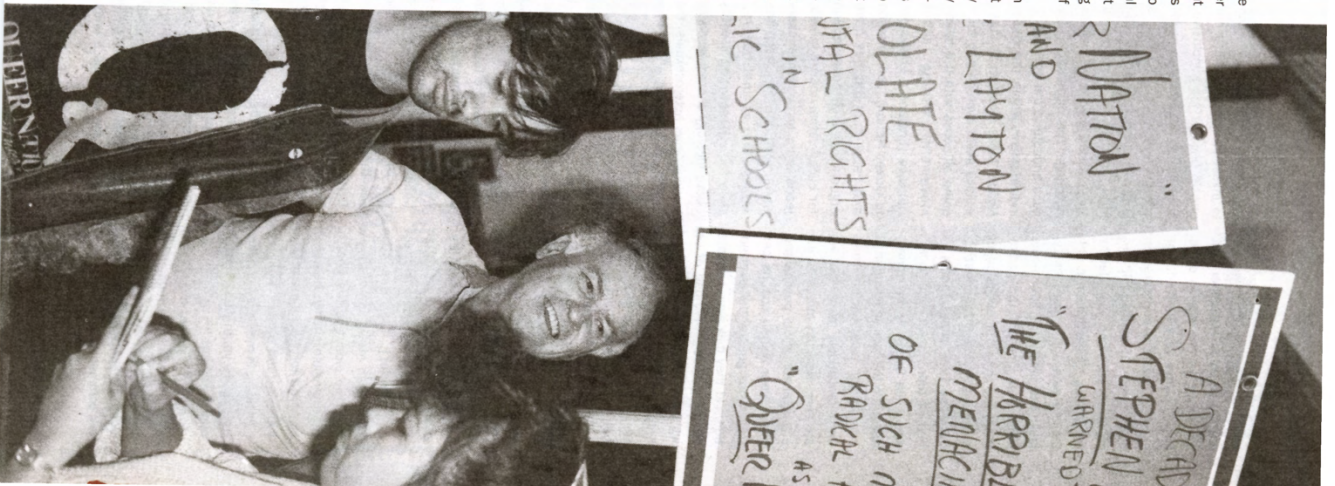 R NATION"
AND
E LAYTON
OLATE
NTAL RIGHTS
IN
LIC SCHOOLS
A DECAD
STEPHEN
WARNED
"THE HORRIBL
MENACIN
OF SUCH
RADICAL
AS
"QUEER
QUEER